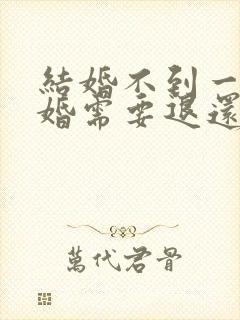 結婚不到一
婚需要退還
萬代君骨